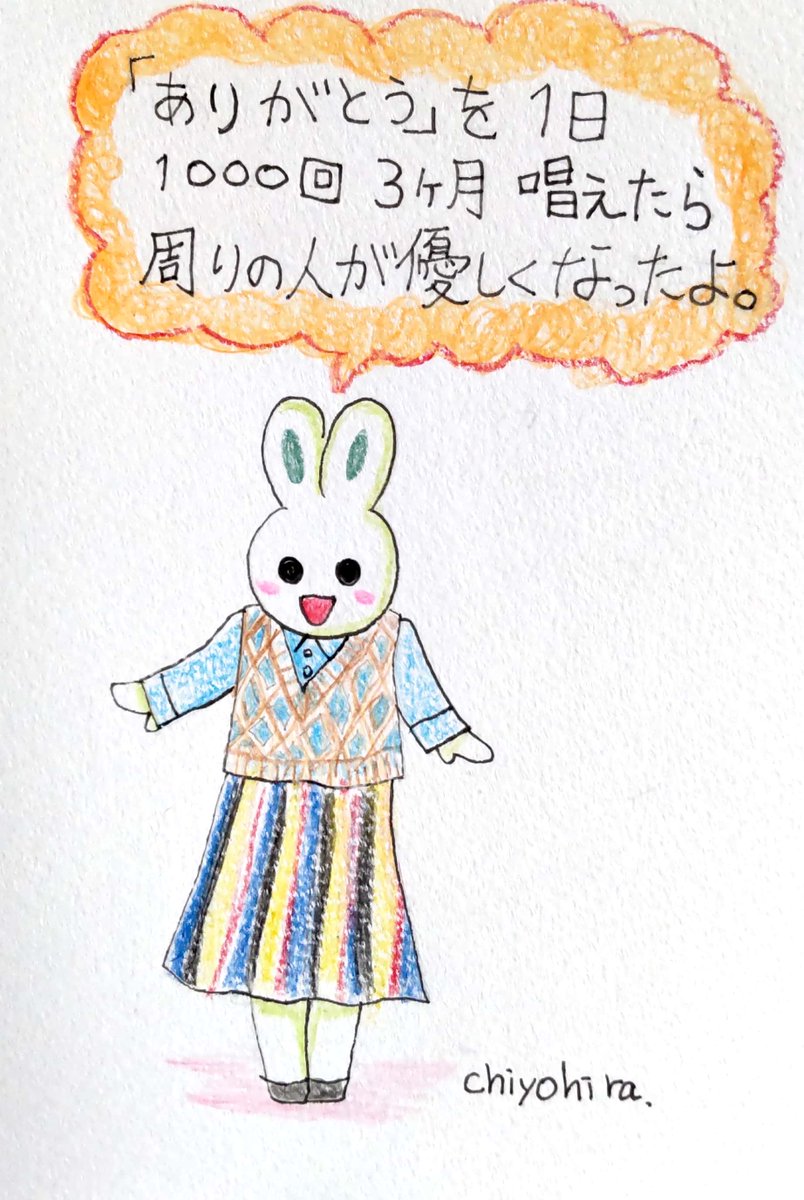 「ありがとう」を 1日
1000回 3ヶ月 唱えたら
周りの人が優しくなったよ。
chiyohira.